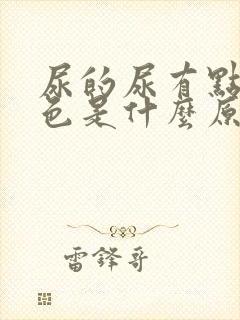 尿的尿有點
色是什麼原
雷鋒哥